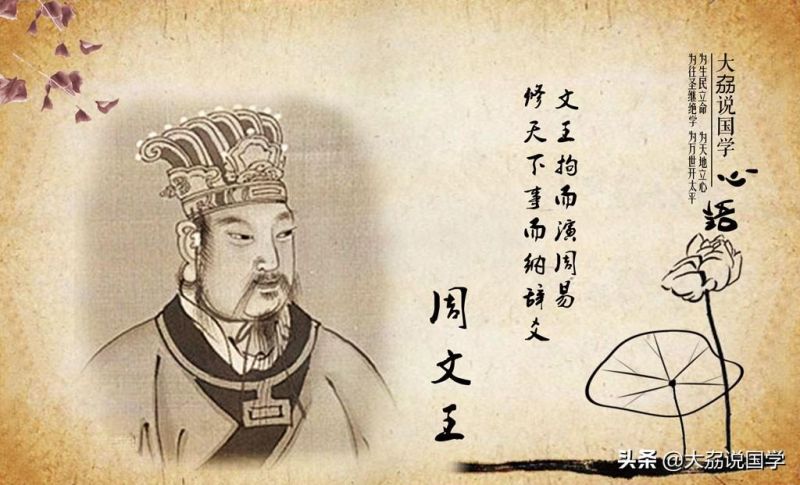 大刕说国学
心語
为生民立命 为天地立心
为往圣继绝学 为万世开太平
文王拘而演周易
修天下事而纳辞爻
周文王
头条 @大刕说国学